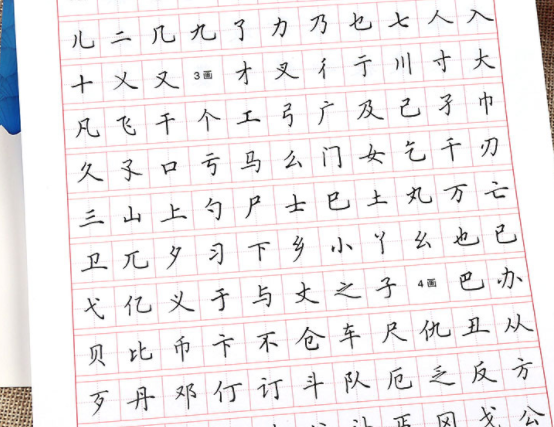 儿二几九了力乃也七人入
十乂又3画才叉彳亍川寸大
凡飞干个工弓广及己孑巾
久孓口亏马么门女乞千刃
三山上勺尸士巳土丸万亡
卫兀夕习下乡小丫幺也已
弋亿义于与丈之子4画巴办
贝比币卞不仓车尺仇丑从
歹丹邓仃订斗队厄乏反方
冈戈公